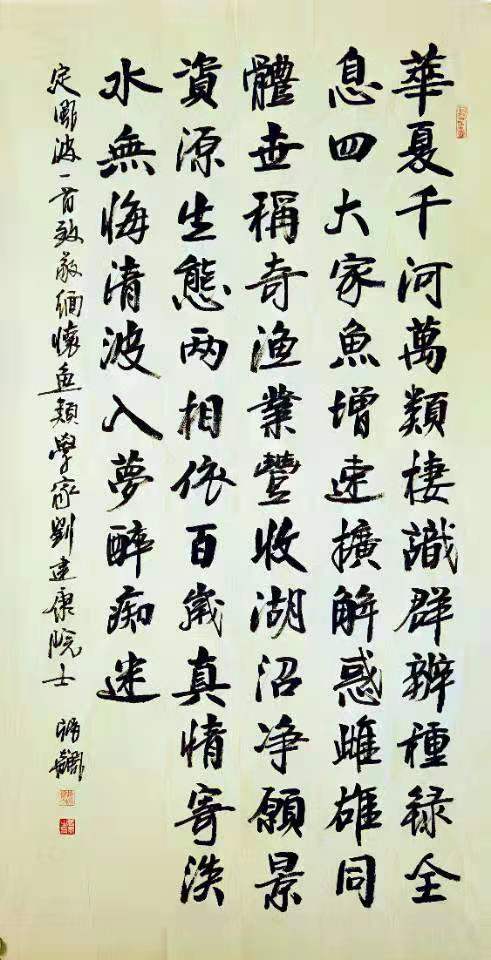 華夏千河萬類棲識群辨種録全
息四大家魚增速擴解惑雌雄同
體世稱奇漁業豐收湖沼净願景
資源生態两相依百歲真情寄淡
水無悔清波入夢醉痴迷
定風波一首致敬缅懷魚類學家劉建康院士